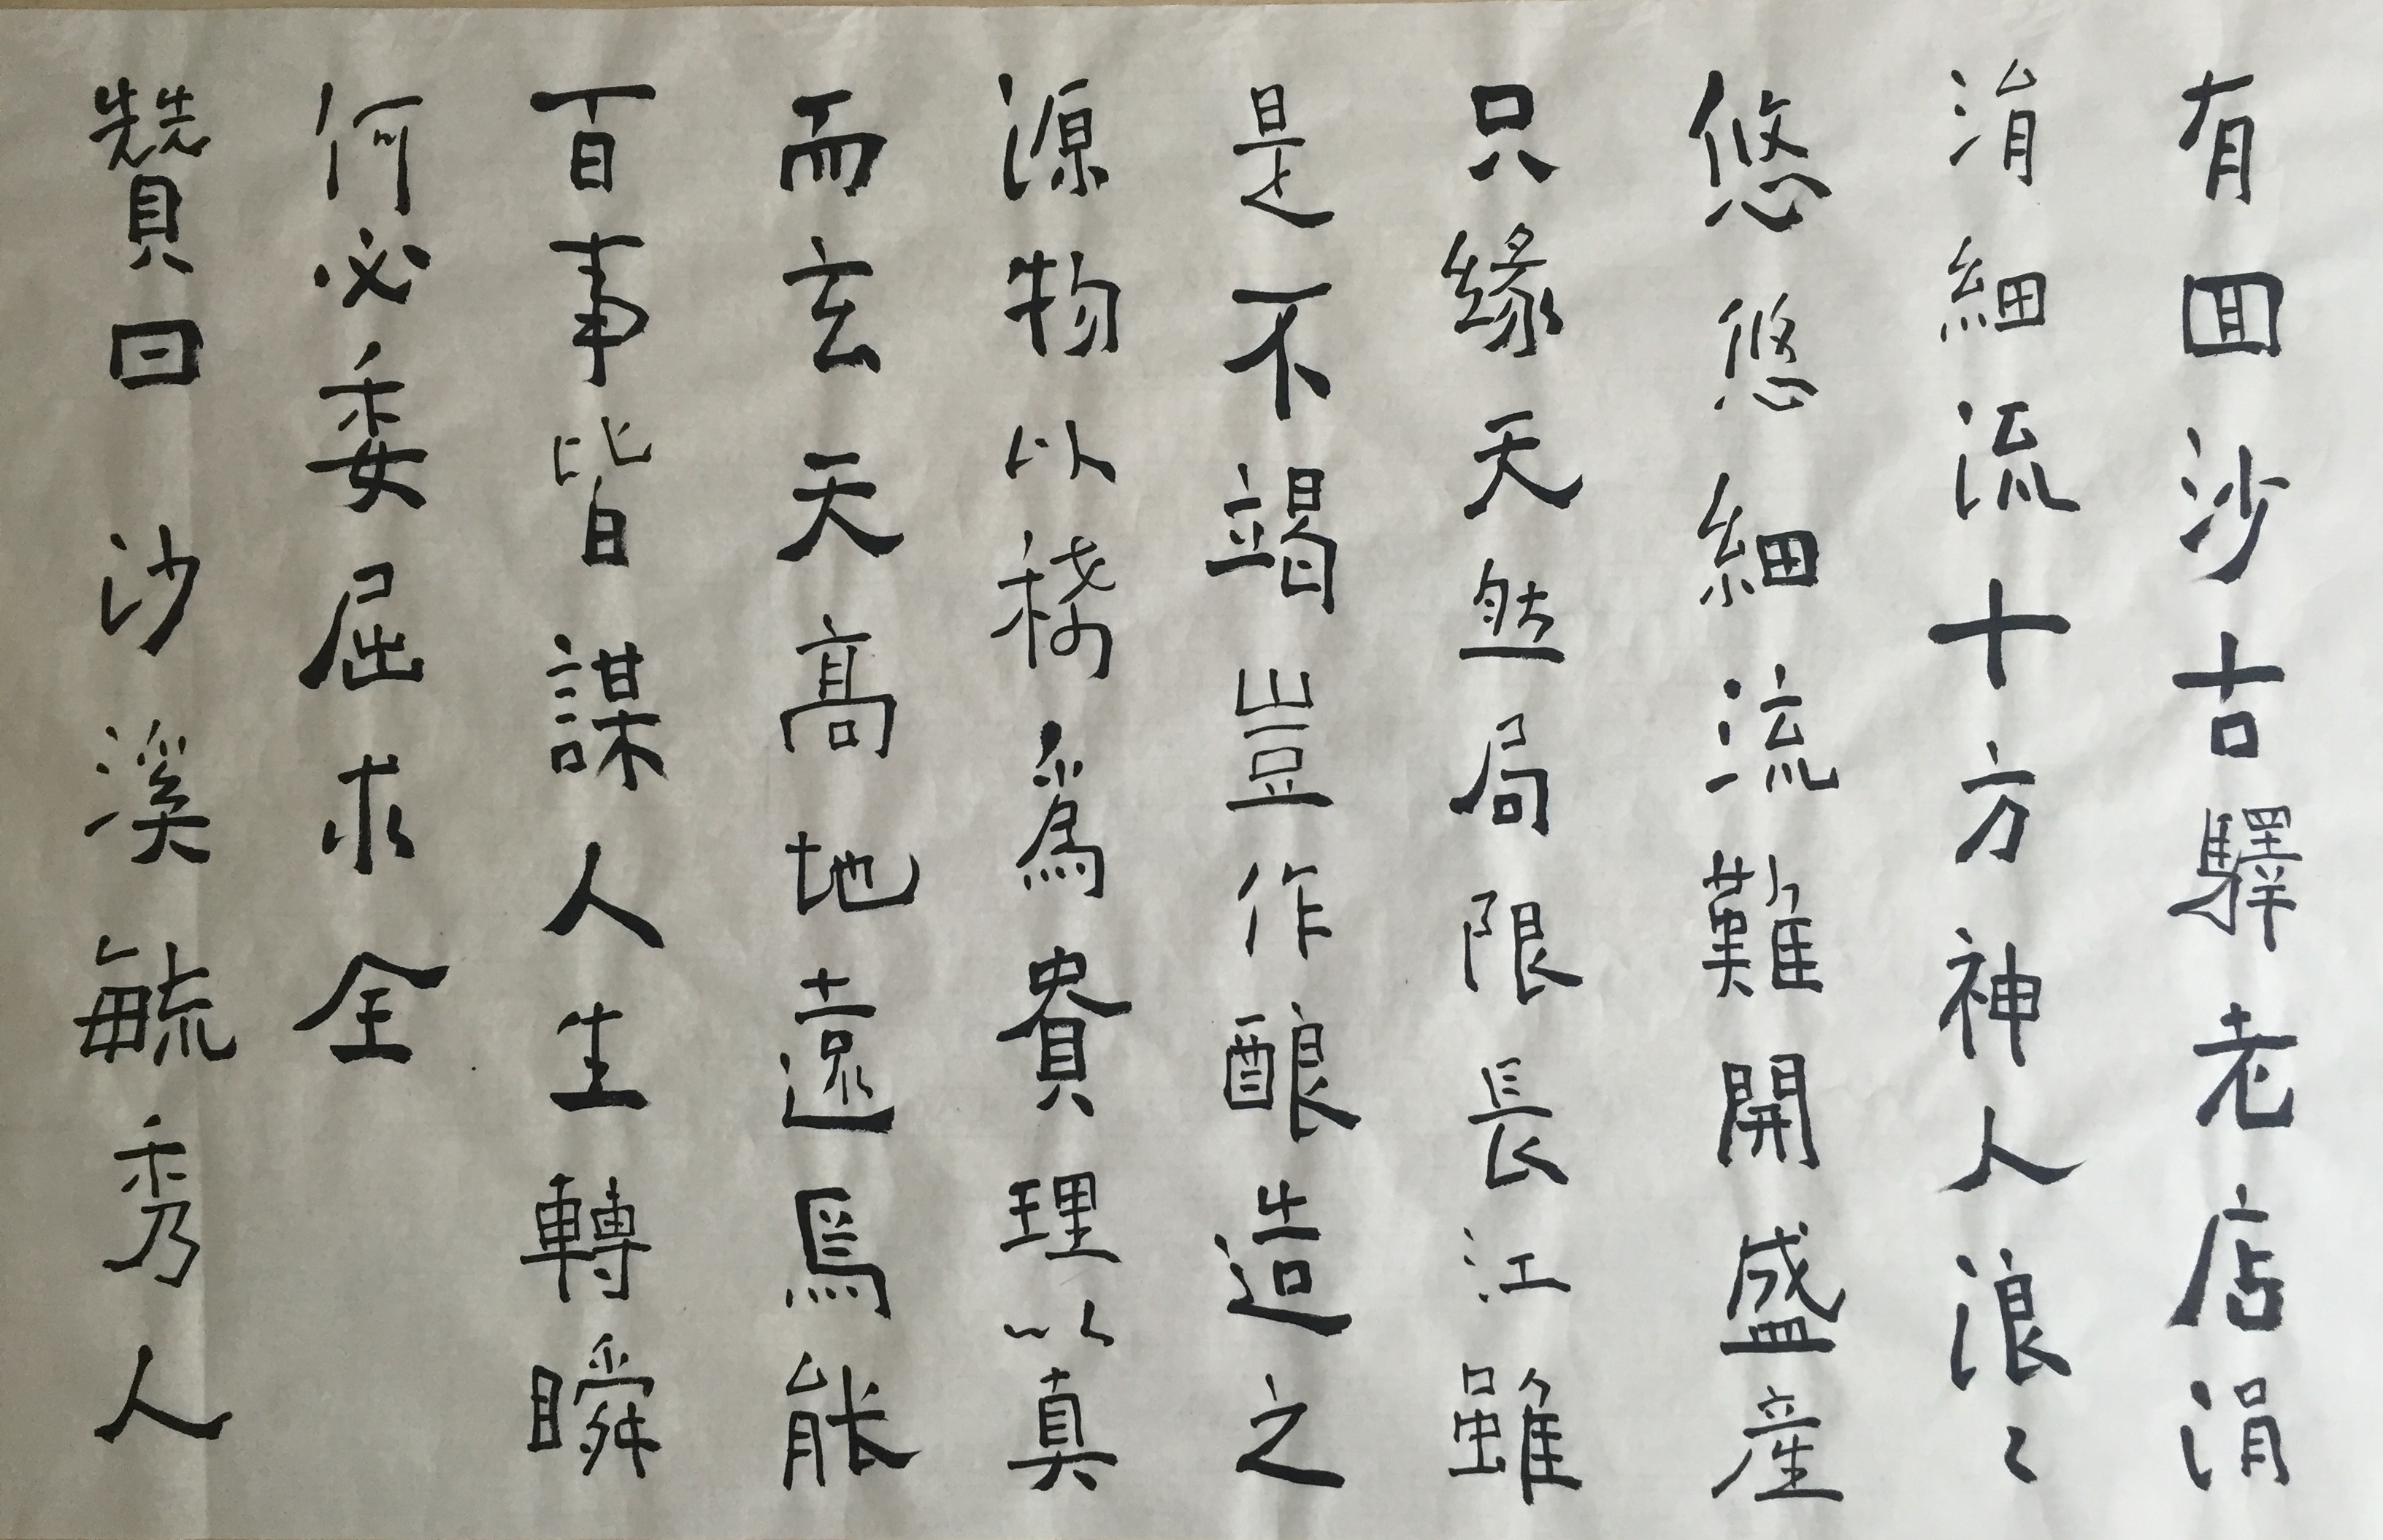 有囬沙古驛老店涓
涓細流十方神人浪〻
悠悠細流難開盛產
只緣天然局限長江雖
是不竭豈作酿造之
源物以稀爲貴理以真
而玄天高地遠焉能
百事皆謀人生轉瞬
何必委屈求全
贊曰沙溪毓秀人